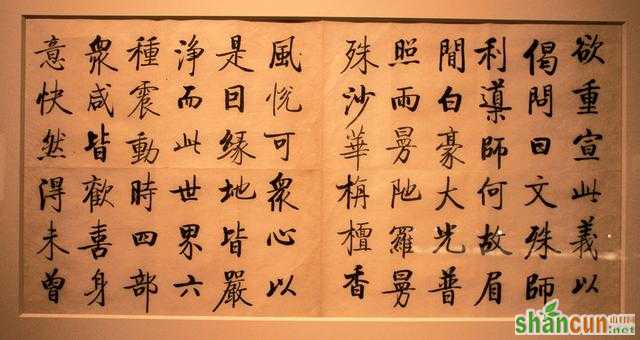 欲重宣此義以
偈問曰文殊師
利導師何故眉
間白豪大光普
照雨曼陁羅曼
殊沙華栴檀香
風悅可衆心以
是因緣地皆嚴
淨而此世界六
種震動時四部
衆咸皆歡喜身
意快然得未曾
shancun